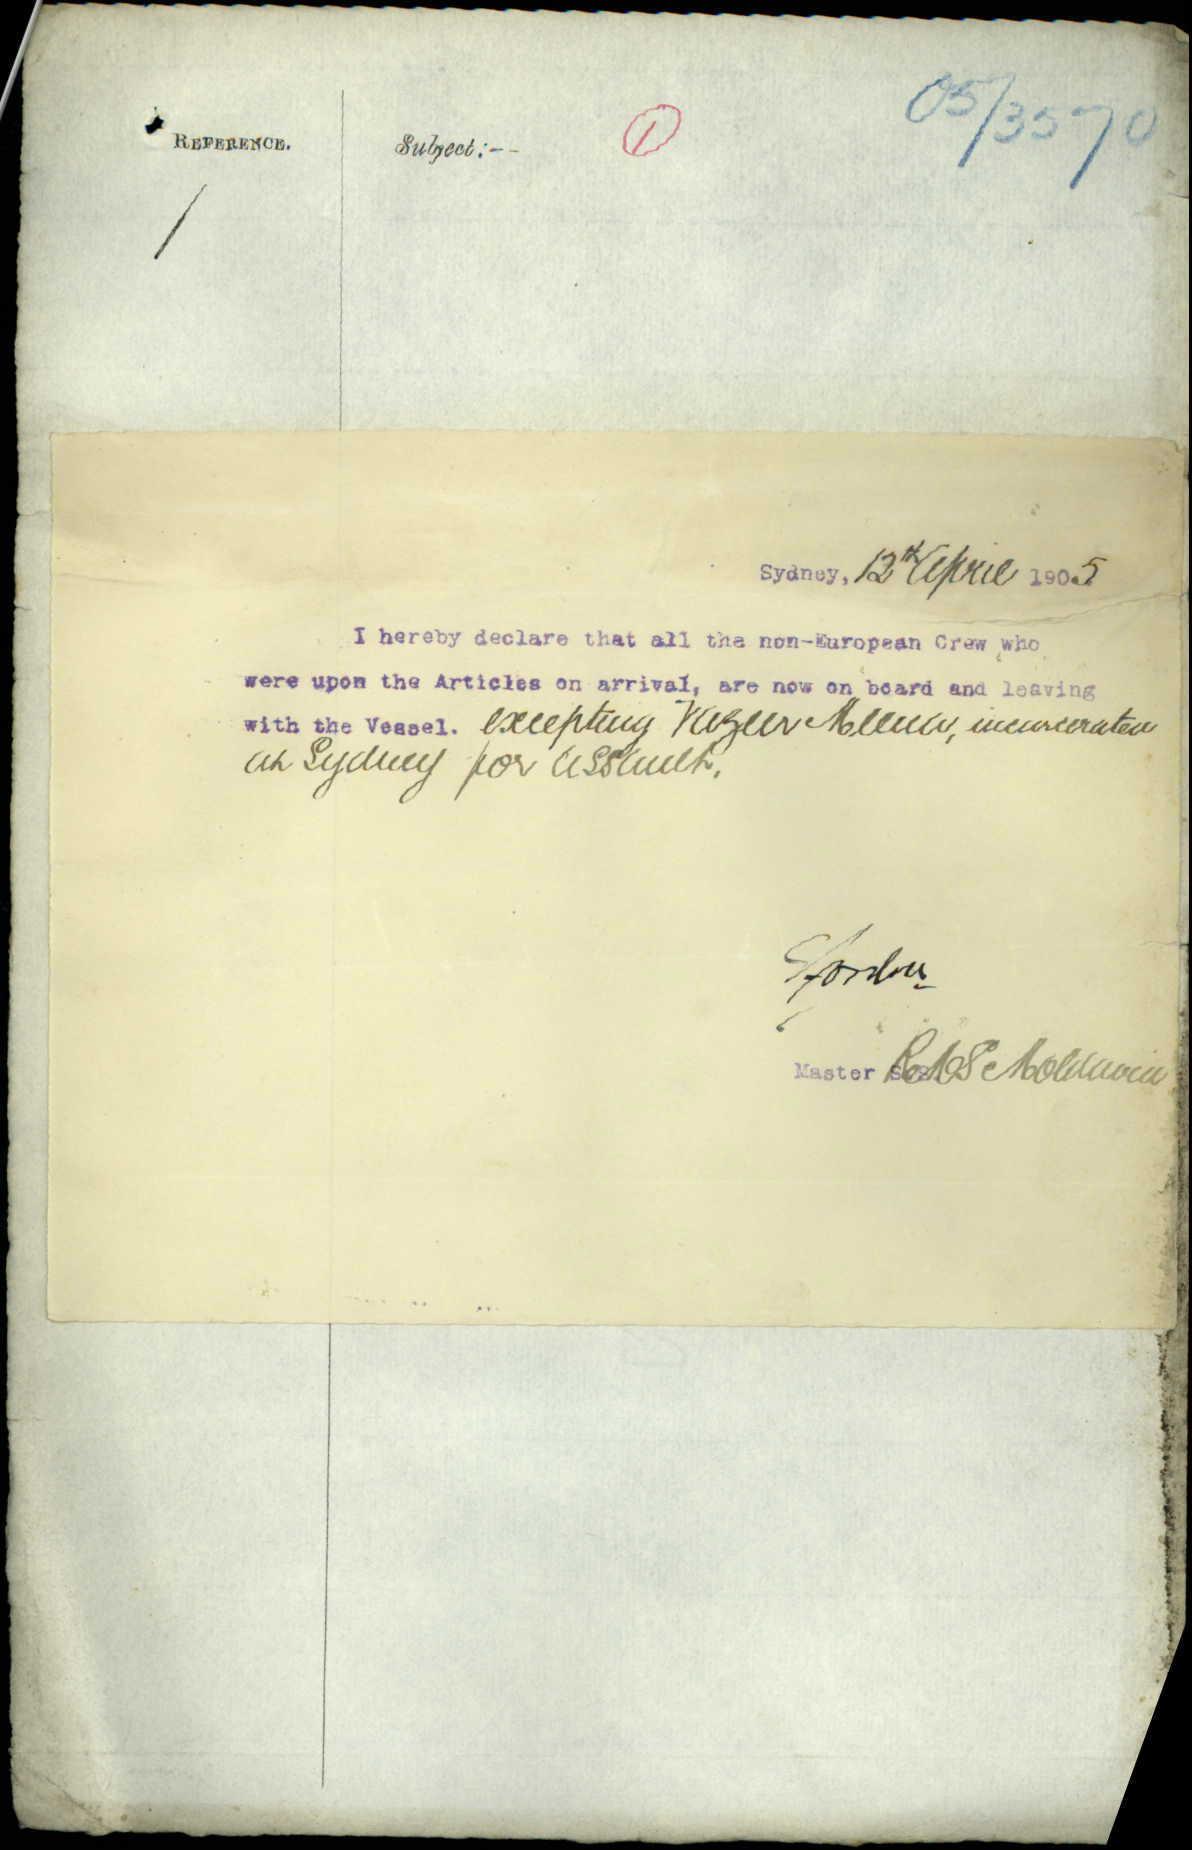 05/3570
REFERENCE. Subject:-- 1
/
Sydney, 12th April 1905
I hereby declare that all the non-European Crew who
were upon the Articles on arrival, are now on board and leaving
with the Vessel. excepting Vazeer Meeun, incarcerated
at Sydney for assault.
Gordon
Master S.S. RMS Moldavia